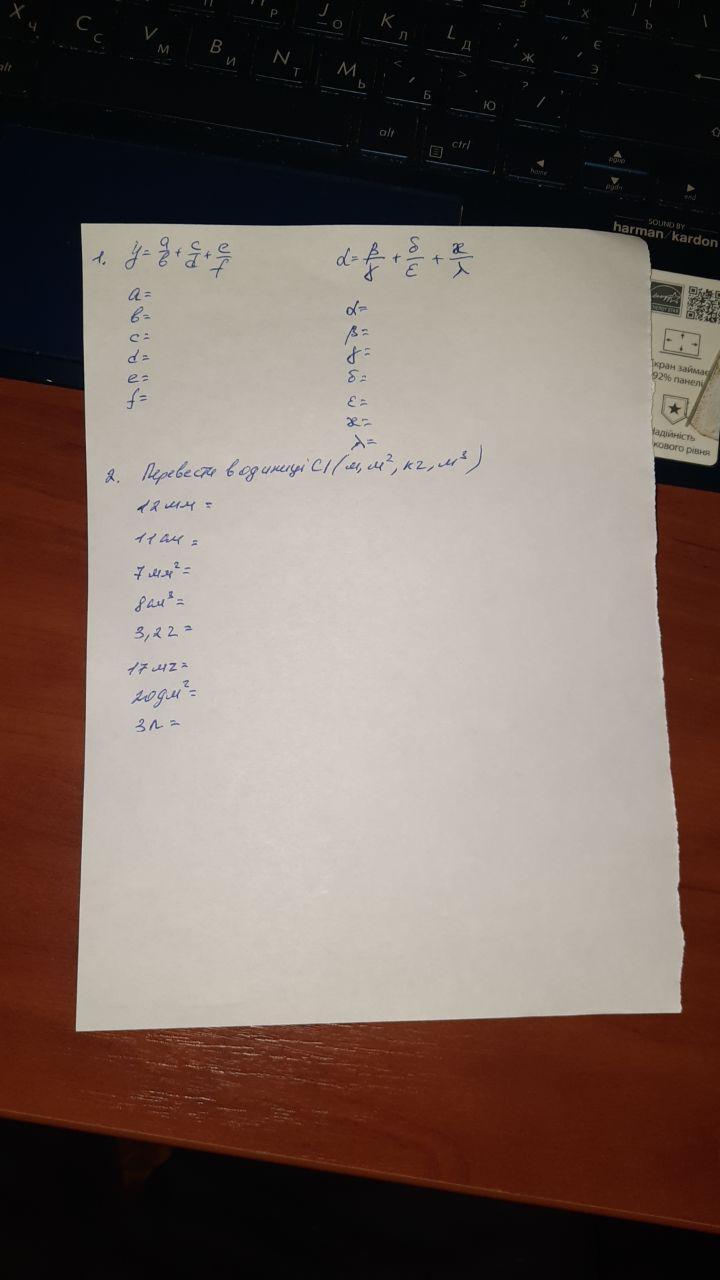 Х Ч
C С
V М
B И
N Т
M Ь
< , Б
> . Ю
? / .
J О
K Л
L Д
: ; Ж
" ' Є Э
Ъ
alt
alt
ctrl
home
pgup
pgdn
end
SOUND BY
harman/kardon
кран займає
92% панелі
Надійність
кового рівня
1. y = a/b + c/d + e/f
α = β/γ + δ/ε + æ/λ
a=
b=
c=
d=
e=
f=
α=
β=
γ=
δ=
ε=
æ=
λ=
2. Перевести в одиниці СІ (м, м², кг, м³)
12мм =
11см =
7мм² =
8см³ =
3,2г =
17мг =
20дм² =
3л =